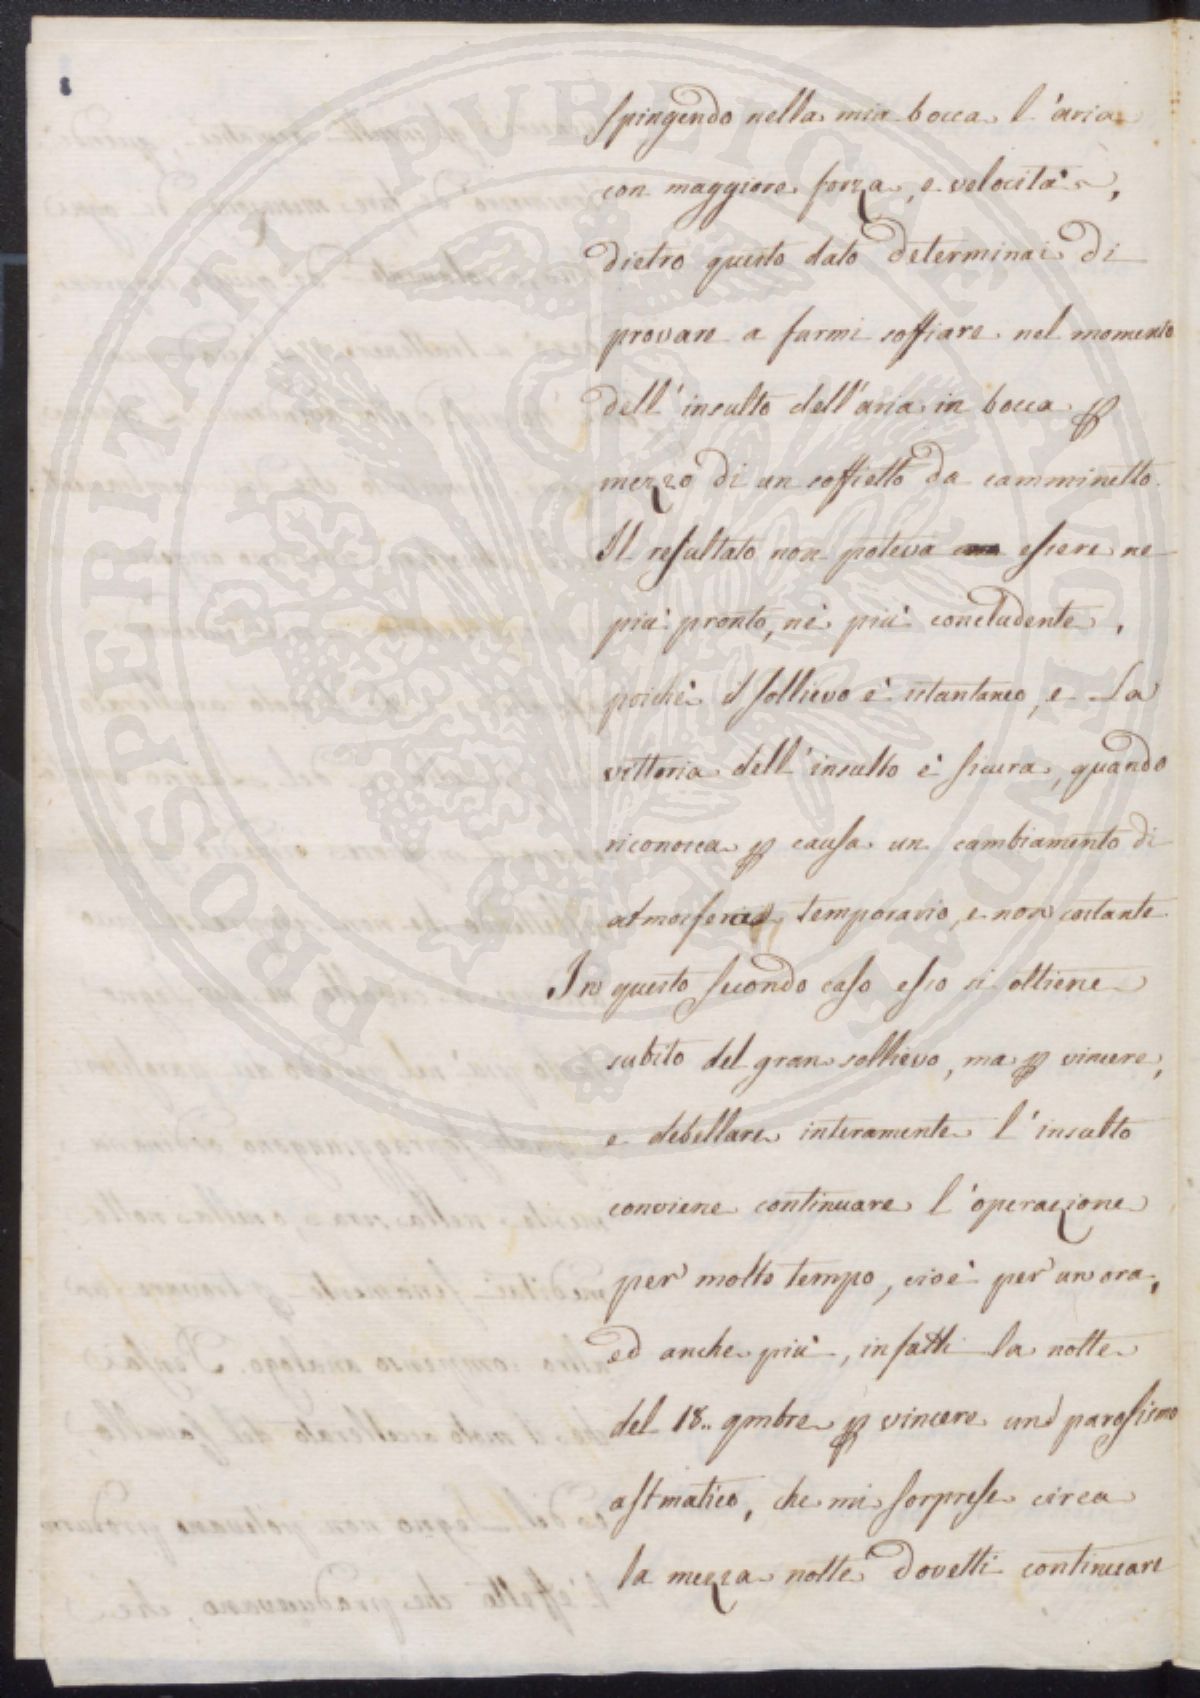 spingendo nella mia bocca l'aria
con maggiore forza, e velocità,
dietro questo dato determinai di
provare a farmi soffiare nel momento
dell'insulto dell'aria in bocca p
mezzo di un soffietto da camminetto.
Il resultato non poteva essere ne
più pronto, nè più concludente,
poichè il sollievo è istantaneo, e la
vittoria dell'insulto è sicura, quando
riconosca p causa un cambiamento di
atmosfera temporario, e non costante
In questo secondo caso esso si ottiene
subito del gran sollievo, ma p vincere,
e debellare interamente l'insulto
conviene continuare l'operazione
per molto tempo, cioè per un ora,
ed anche più, infatti la notte
del 18.. 9mbre p vincere un parossismo
astmatico, che mi sorprese circa
la mezza notte dovetti continuare
PROSPERITATI PUBLICAE AUGENDAE